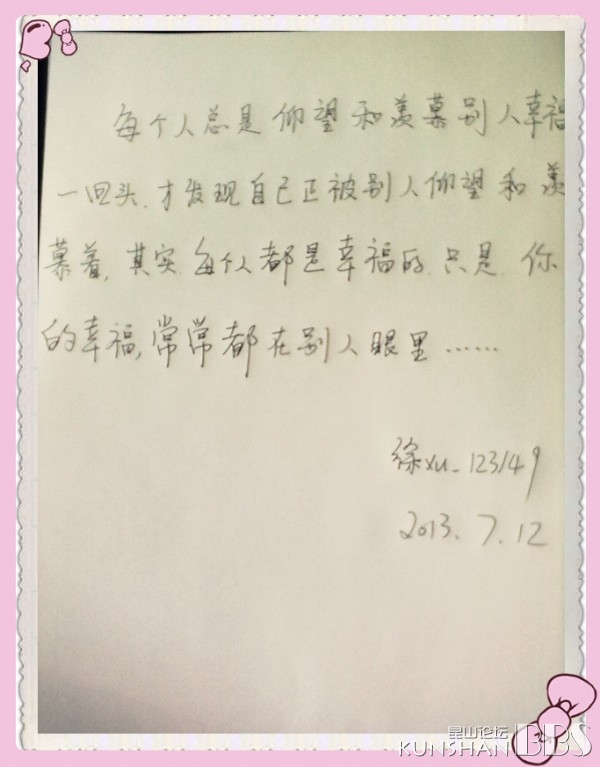 每个人总是仰望和羡慕别人幸福
一回头.才发现自己正被别人仰望和羡
慕着,其实.每个人都是幸福的.只是.你
的幸福,常常都在别人眼里……
徐xu_123149
2013.7.12
昆山论坛
KUNSHAN BBS